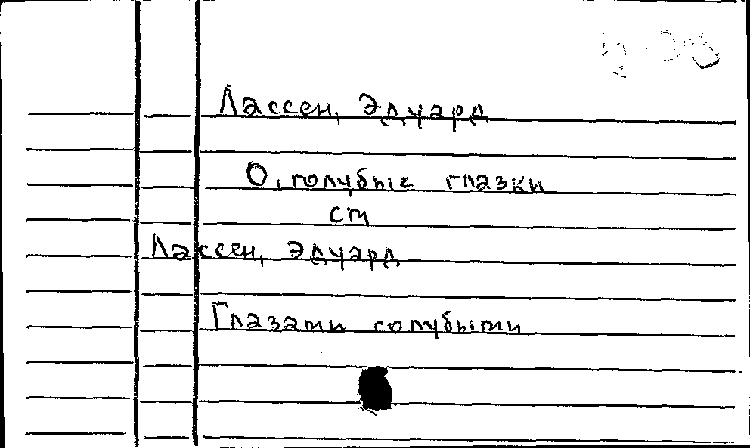 Лассен, Эдуард
О, голубые глазки
см
Лассен, Эдуард
Глазами голубыми